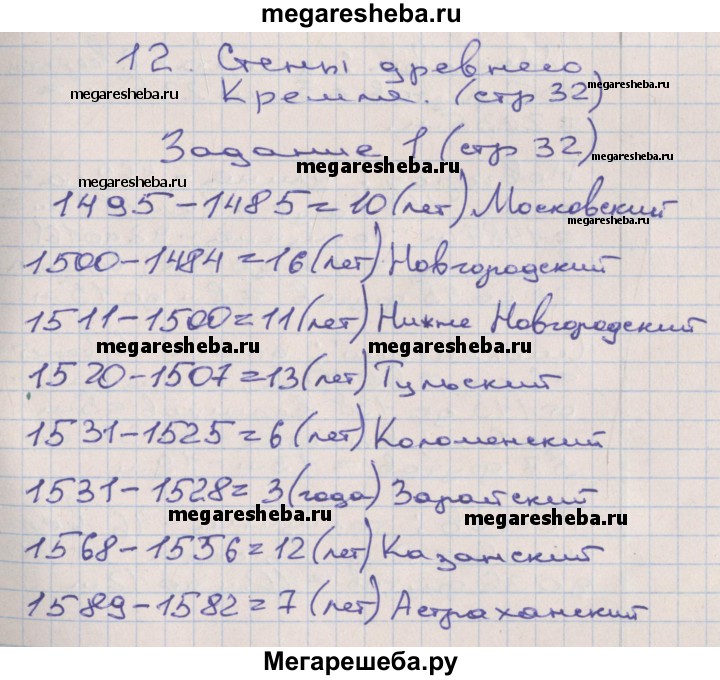 megaresheba.ru
12. Стены древнего
megaresheba.ru
megaresheba.ru
Кремля. (стр 32)
Задание 1 (стр 32)
megaresheba.ru
megaresheba.ru
megaresheba.ru
1495-1485=10 (лет) Московский
megaresheba.ru
1500-1484=16 (лет) Новгородский
1511-1500=11 (лет) Нижне Новгородский
megaresheba.ru
megaresheba.ru
1520-1507=13 (лет) Тульский
1531-1525=6 (лет) Коломенский
1531-1528=3 (года) Зарайский
megaresheba.ru
megaresheba.ru
1568-1556=12 (лет) Казанский
1589-1582=7 (лет) Астраханский
Мегарешеба.ру